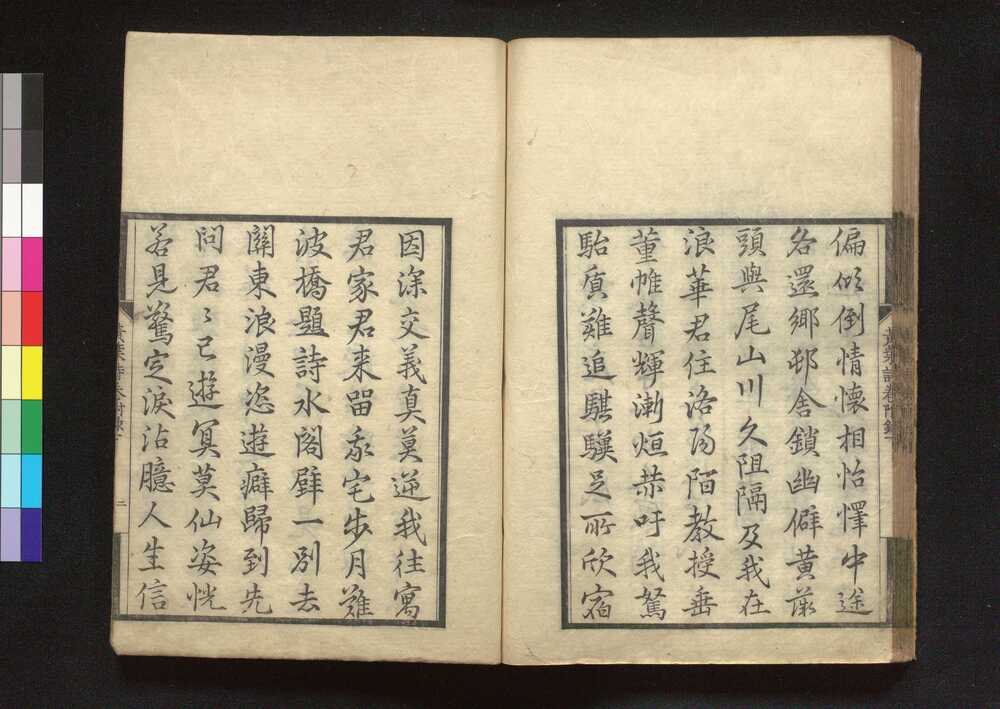 偏傾倒情懷相怡懌中途
各還鄉邨舍鎖幽僻黄薇
頭與尾山川久阻隔及我在
浪華君住洛陽陌教授垂
董帷聲輝漸烜赫吁我駑
駘質難追騏驥足所欣宿
因深交義真莫逆我往寓
君家君来留我宅步月難
波橋題詩水閣壁一別去
關東浪漫恣遊癖歸到先
問君〻已遊冥莫仙姿恍
若是驚定淚沾臆人生信
黄葉詩卷附錄下
二